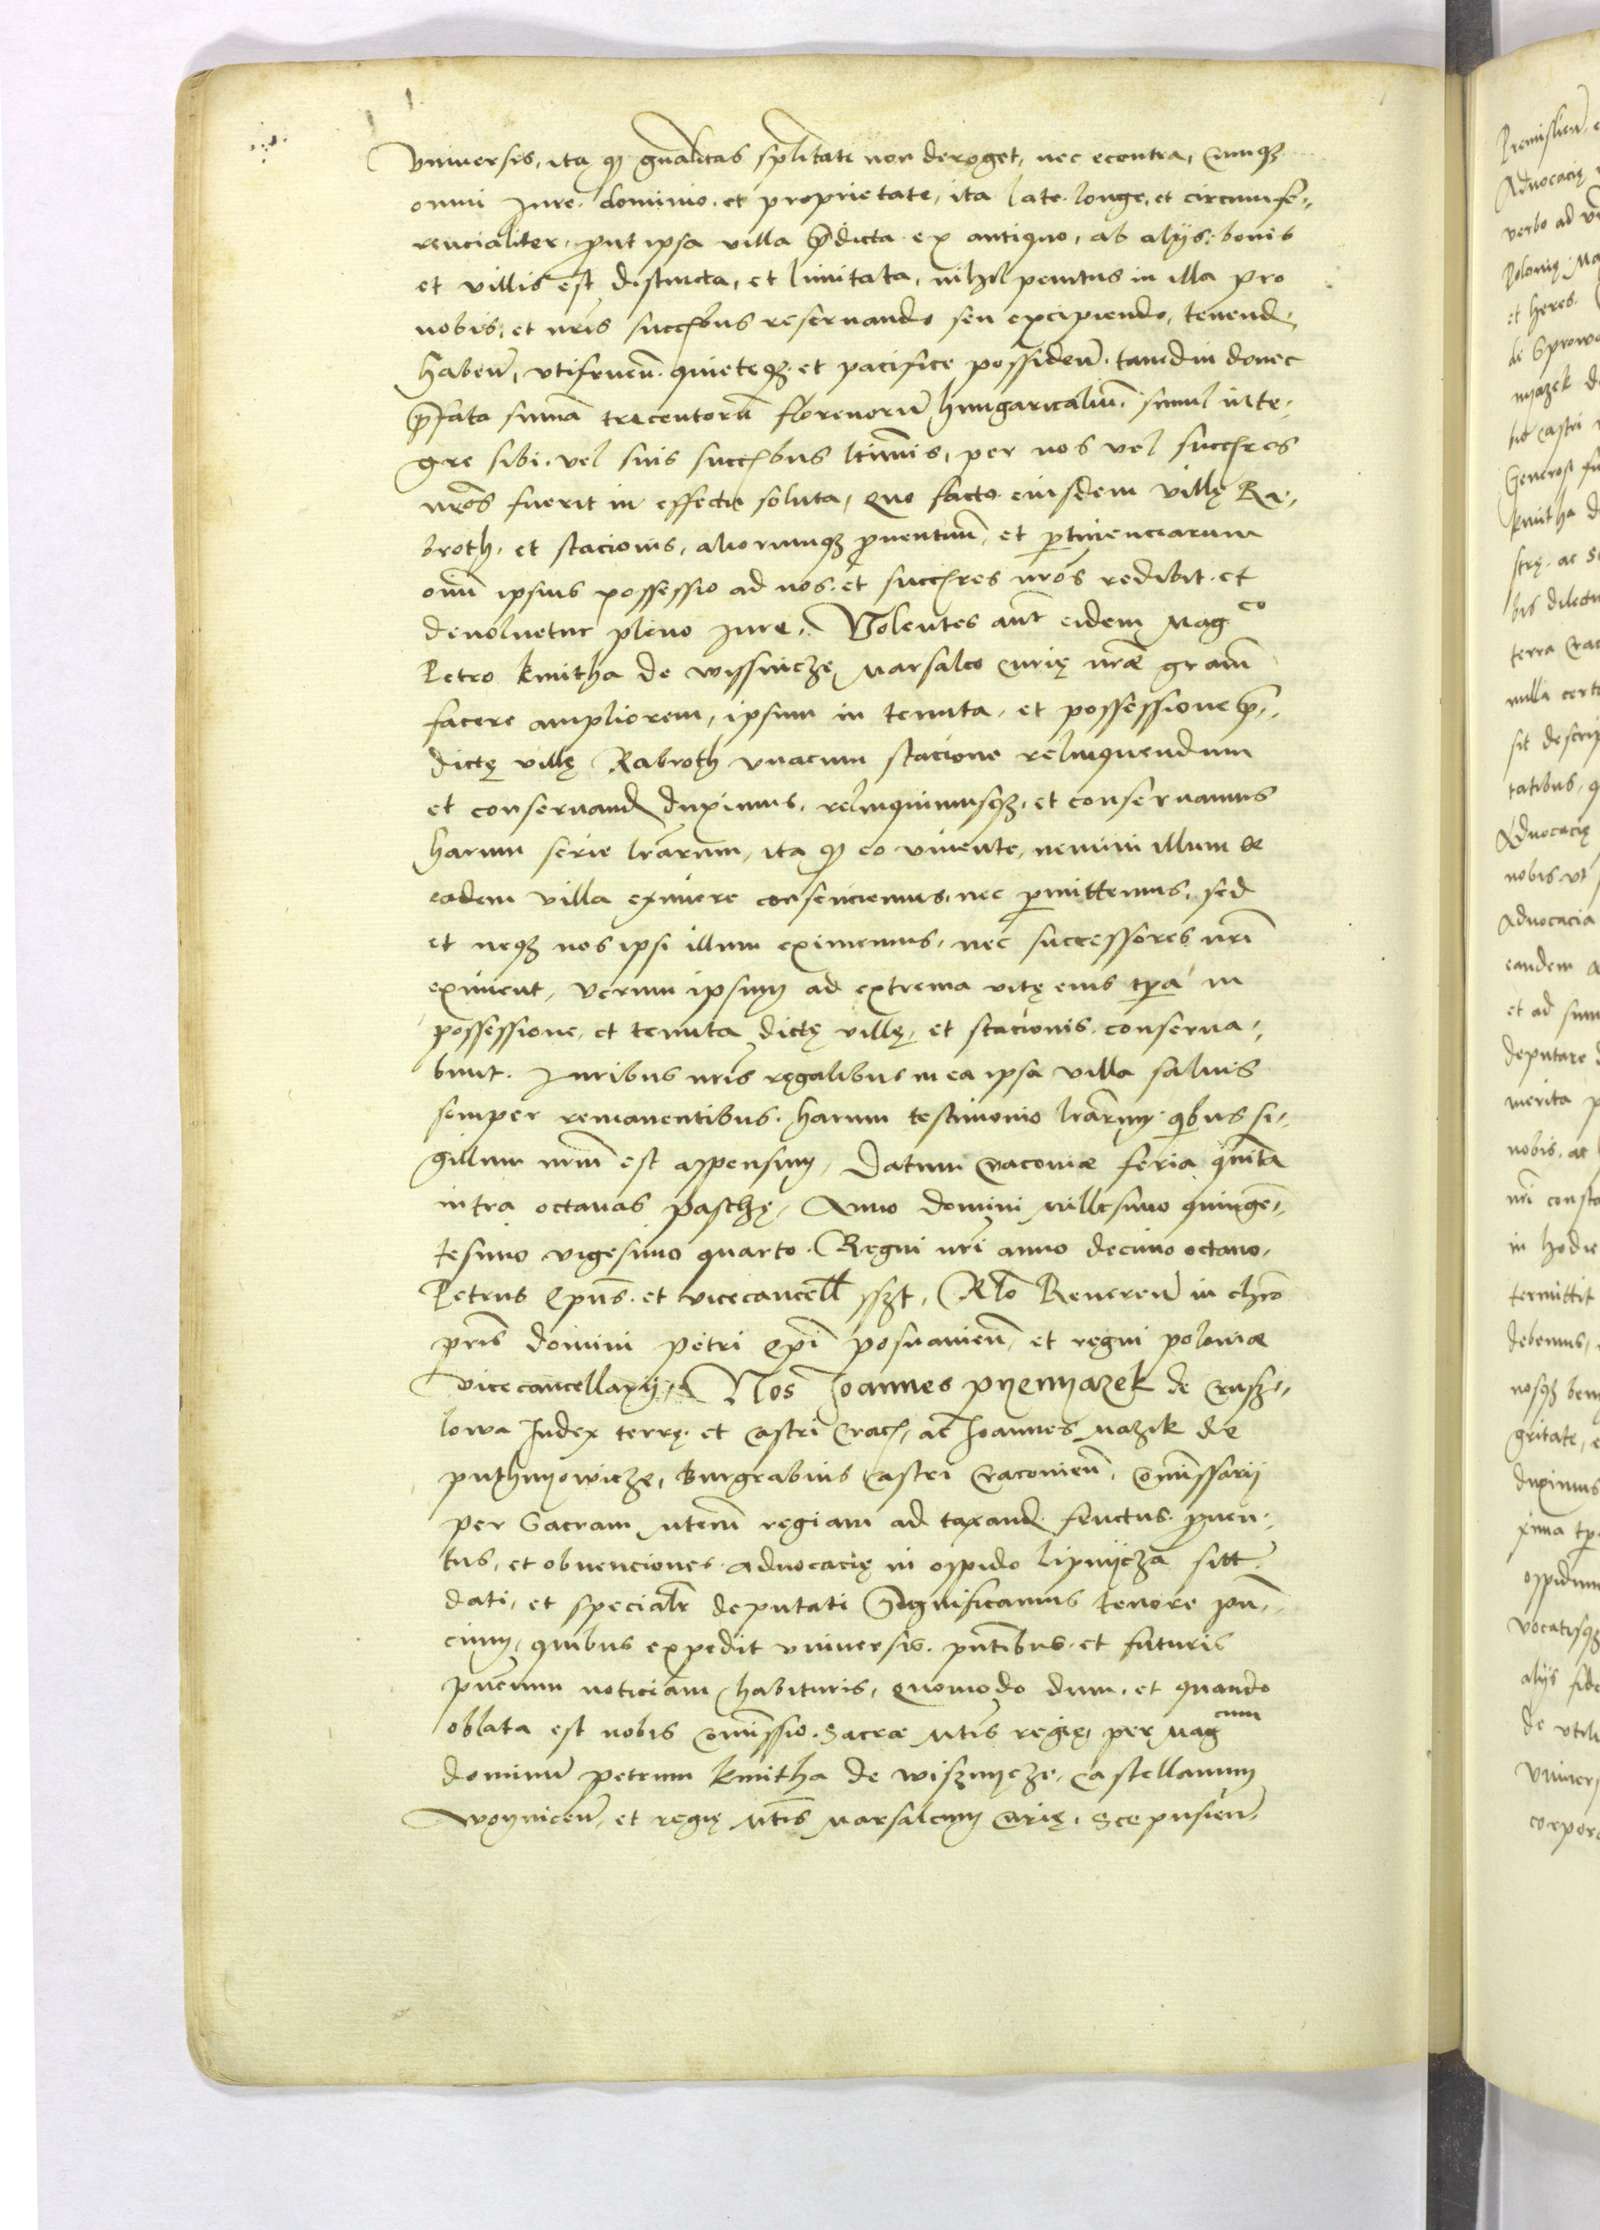 Vniversis, ita qđ gñalitas sp̃litati non deroget, nec econtra, Cumqȝ
omni Jure. dominio. et proprietate, ita late. longe, et circumfe-
rencialiter, put ipsa villa p̄dicta ex antiquo, ab alijs. bonis
et villis est distincta, et limitata, nihil penitus in illa pro
nobis, et nr̃is succ̃bus reseruando seu excipiendo, tenend
habeñ, vtifrueñ. quieteqȝ. et pacifice possideñ. tamdiu donec
p̄fata suma trecentorũ florenorũ hungaricaliũ simul inte-
gre sibi. vel suis succ̃bus ltimis, per nos vel succ̃res
nr̃os fuerit in effectu soluta, Quo facto eiusdem villę Ra-
broth. et stacionis, aliorumqȝ ꝓuentuũ, et ꝑtinenciarum
oim̃ ipsius possessio ad nos. et succ̃res nr̃os redibit. et
deuoluetur pleno Jure. Volentes aũt eidem Magco
Petro kmitha de wissnicze Marsalco Curię nr̃æ gram̃
facere ampliorem, ipsum in tenuta, et possessione p̄-
dictę villę Rabroth vnacum stacione relinquendum
et conseruand duximus. relinquimusqȝ. et conseruamus
harum serie lr̃arum, ita qđ eo viuente, nemini illum de
eadem villa eximere consenciemus. nec ꝑmittemus, sed
et neqȝ nos ipsi illum eximemus, nec successores nr̃i
eximent, verum ipsum ad extrema vitę eius tp̃a in
possessione, et tenuta dictę villę, et stacionis. conserua-
bunt. Juribus nr̃is regalibus in ea ipsa villa saluis
semper remanentibus. harum testimonio lr̃arum. qbus si-
gillum nrm̃ est appensum, Datum Cracoviæ feria quinta
intra octauas paschę, Anno domini Millesimo quingen-
tesimo vigesimo quarto. Regni nr̃i anno decimo octauo.
Petrus Ep̃us. et vicecancell sszt, Rlõ Reuereñ in chro
pr̃is domini petri Ep̃i posnanieñ, et regni poloniæ
vicecancellarij, Nos Joannes pyenyazek de Crusz-
lowa Judex terrę. et Castri Crach, ac Joannes Mazik de
puthnyowicze, burgrabius Castri Cracouieñ, Com̃issarij
per Sacram Mtem̃ regiam ad taxand. fructus. ꝓuen-
tus, et obuenciones. aduocacię in oppido lipnijcza sitt
dati, et specialr̃ deputati Significamus tenore pñ-
cium, quibus expedit vniuersis. pñtibus. et futuris
pñcium noticiam habituris, Quomodo dum. et quando
oblata est nobis Com̃issio. Sacræ Mtis̃ regię, per Magcum
dominũ petrum kmitha de wisznycze, Castellanum
Woynicẽn, et regię Mtis̃ Marsalcum Curię, Scepusieñ.